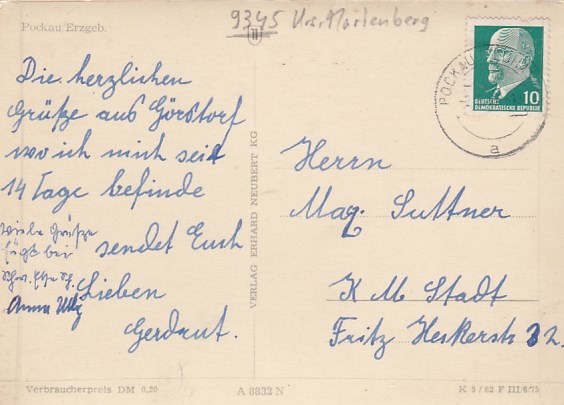 9345 Krs. Marienberg
Pockau/Erzgeb.
Die herzlichen
Grüße aus Görstorf
wo ich mich seit
14 Tage befinde
sendet Euch
Lieben
Gerdraut.
viele Grüße
fügt bei
Anna
VERLAG ERHARD NEUBERT KG
POCKAU
a
DEUTSCHE
DEMOKRATISCHE REPUBLIK
10
Herrn
Max Suttner
K M Stadt
Fritz Heckerstr 32.
Verbraucherpreis DM 0,20
A 8832 N
K 5/62 F III/6/75